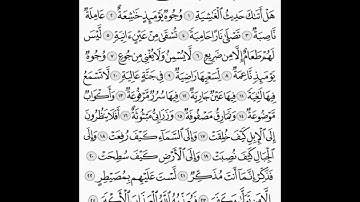 هَلْ أَتَىٰكَ حَدِيثُ ٱلْغَٰشِيَةِ ١ وُجُوهٌ يَوْمَئِذٍ خَٰشِعَةٌ ٢ عَامِلَةٌ
نَّاصِبَةٌ ٣ تَصْلَىٰ نَارًا حَامِيَةً ٤ تُسْقَىٰ مِنْ عَيْنٍ ءَانِيَةٍ ٥ لَّيْسَ
لَهُمْ طَعَامٌ إِلَّا مِن ضَرِيعٍ ٦ لَّا يُسْمِنُ وَلَا يُغْنِى مِن جُوعٍ ٧ وُجُوهٌ
يَوْمَئِذٍ نَّاعِمَةٌ ٨ لِّسَعْيِهَا رَاضِيَةٌ ٩ فِى جَنَّةٍ عَالِيَةٍ ١٠ لَّا تَسْمَعُ
فِيهَا لَٰغِيَةً ١١ فِيهَا عَيْنٌ جَارِيَةٌ ١٢ فِيهَا سُرُرٌ مَّرْفُوعَةٌ ١٣ وَأَكْوَابٌ
مَّوْضُوعَةٌ ١٤ وَنَمَارِقُ مَصْفُوفَةٌ ١٥ وَزَرَابِىُّ مَبْثُوثَةٌ ١٦ أَفَلَا يَنظُرُونَ
إِلَى ٱلْإِبِلِ كَيْفَ خُلِقَتْ ١٧ وَإِلَى ٱلسَّمَآءِ كَيْفَ رُفِعَتْ ١٨ وَإِلَى
ٱلْجِبَالِ كَيْفَ نُصِبَتْ ١٩ وَإِلَى ٱلْأَرْضِ كَيْفَ سُطِحَتْ ٢٠
فَذَكِّرْ إِنَّمَآ أَنتَ مُذَكِّرٌ ٢١ لَّسْتَ عَلَيْهِم بِمُصَيْطِرٍ ٢٢